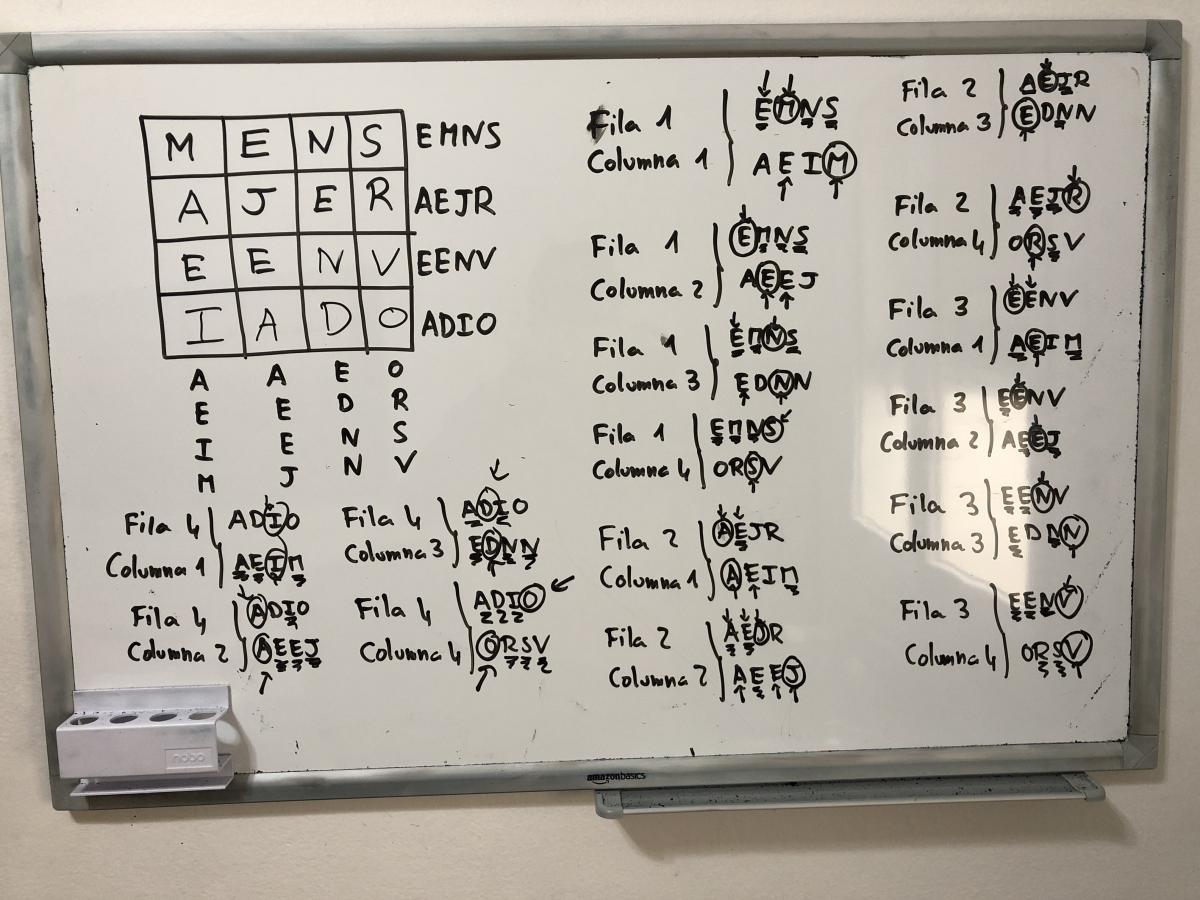 M E N S EMNS
A J E R AEJR
E E N V EENV
I A D O ADIO
A A E O
E E D R
I E N S
M J N V
Fila 4 ADIO
Columna 1 AEIM
Fila 4 ADIO
Columna 2 AEEJ
Fila 4 ADIO
Columna 3 EDNN
Fila 4 ADIO
Columna 4 ORSV
Fila 1 EMNS
Columna 1 AEIM
Fila 1 EMNS
Columna 2 AEEJ
Fila 1 EMNS
Columna 3 EDNN
Fila 1 EMNS
Columna 4 ORSV
Fila 2 AEJR
Columna 1 AEIM
Fila 2 AEJR
Columna 2 AEEJ
Fila 2 AEJR
Columna 3 EDNN
Fila 2 AEJR
Columna 4 ORSV
Fila 3 EENV
Columna 1 AEIM
Fila 3 EENV
Columna 2 AEEJ
Fila 3 EENV
Columna 3 EDNN
Fila 3 EENV
Columna 4 ORSV
nobo
amazonbasics